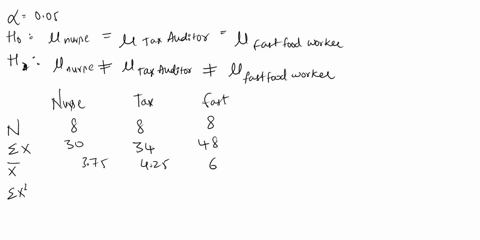 α = 0.05
H₀: μ nurse = μ Tax Auditor = μ fast food worker
H₂: μ nurse ≠ μ Tax Auditor ≠ μ fast food worker
Nurse Tax fast
N 8 8 8
ΣX 30 34 48
X̄ 3.75 4.25 6
ΣX²